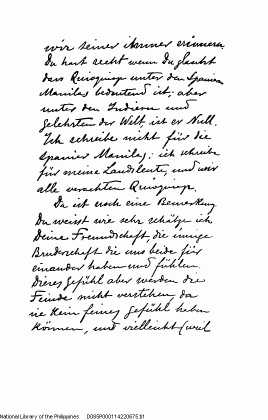 wir seiner immer erinnern.
Du hast recht wenn Du glaubst
dass Quioquiap unter den Spanier
Manilas bedeutend ist; aber
unter den Indiern und
Gelehrten der Welt, ist er Null.
Ich schreibe nicht für die
Spanier Manilas; ich schreibe
für meine Landsleute, und wir
alle verachten Quioquiap.
Da ist noch eine Bemerkung
Du weisst wie sehr schätze ich
Deine Freundschaft, die innige
Bruderschaft die uns beide für
einander haben und fühlen
Dieses Gefühl aber werden die
Feinde nicht verstehen, da
sie kein feines Gefühl haben
können, und vielleicht (weil
National Library of the Philippines D095P00011422067S.tif